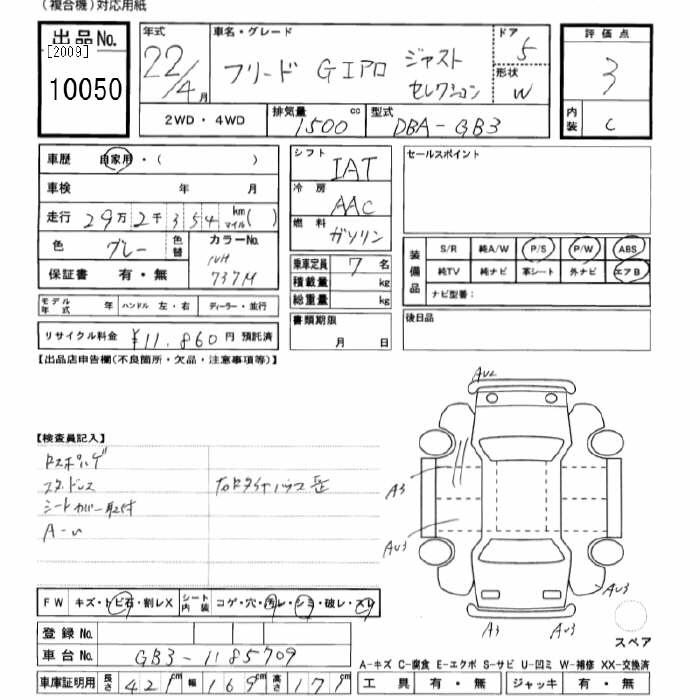 (複合機)対応用紙
出品No.
[2009]
10050
年式
22/4月
車名・グレード
フリード GIPロ ジャスト セレクション
ドア
5
形状
W
評価点
3
内装
C
2WD・4WD
排気量
1500 cc
型式
DBA-GB3
車歴 自家用・( )
車検 年 月
走行 29万2千354 km マイル( )
色 グレー 色替
カラーNo.
NH
737M
保証書 有・無
モデル年式 年 ハンドル 左・右 ディーラー・並行
リサイクル料金 ¥11,860円 預託済
シフト
IAT
冷房
AAC
燃料
ガソリン
乗車定員 7名
積載量 kg
総重量 kg
書類期限
月 日
セールスポイント
装備品
S/R 純A/W P/S P/W ABS
純TV 純ナビ 革シート 外ナビ エアB
ナビ型番:
後日品
【出品店申告欄(不良箇所・欠品・注意事項等)】
【検査員記入】
シートカバー取付
A-U
AU2
A3
AU3
AU3
A3
AU3
スペア
FW キズ・トビ石・割レX
シート内装 コゲ・穴・汚レ・シミ・破レ・スレ
登録No.
車台No. GB3-1185709
車庫証明用 長さ 421cm 幅 169cm 高さ 171cm
A-キズ C-腐食 E-エクボ S-サビ U-凹ミ W-補修 XX-交換済
工具 有・無 ジャッキ 有・無